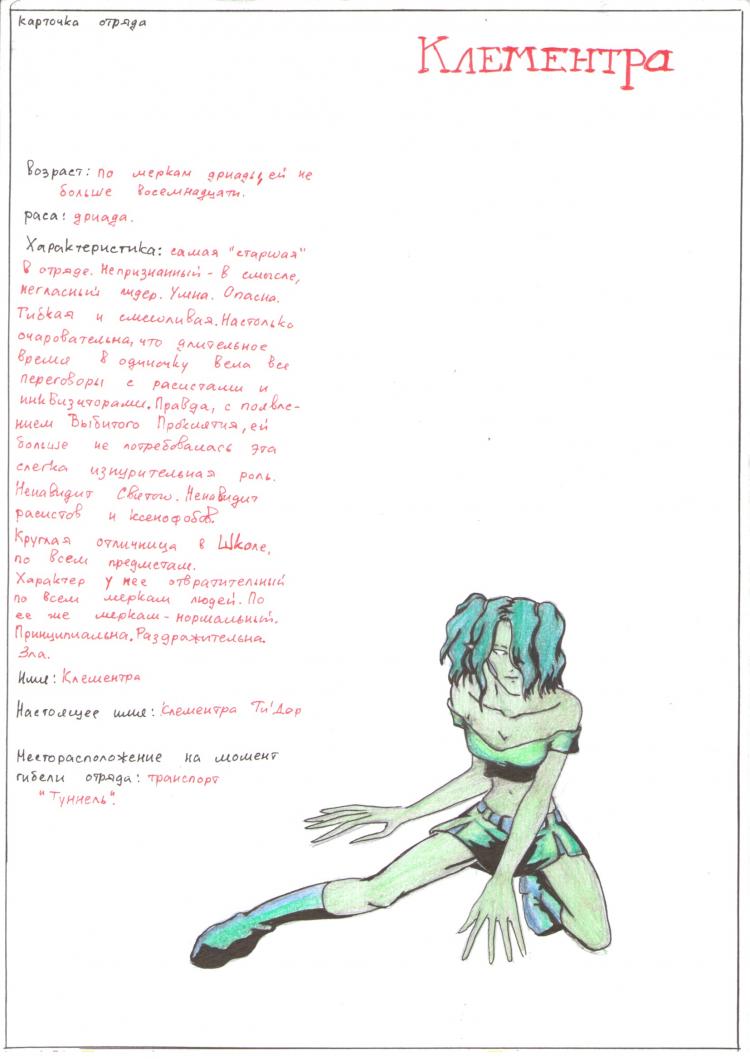 Карточка отряда
Клементра
Возраст: по меркам дриады, ей не
больше восемнадцати.
раса: дриада.
Характеристика: самая "старшая"
в отряде. Непризнанный - в смысле,
негласный лидер. Умна. Опасна.
Гибкая и смешливая. Настолько
очаровательна, что длительное
время в одиночку вела все
переговоры с расистами и
инквизиторами. Правда, с появле-
нием Выбитого Проклятия, ей
больше не потребовалась эта
слегка изнурительная роль.
Ненавидит Святого. Ненавидит
расистов и ксенофобов.
Круглая отличница в Школе,
по всем предметам.
Характер у нее отвратительный
по всем меркам людей. По
ее же меркам - нормальный.
Принципиальна. Раздражительна.
Зла.
Имя: Клементра
Настоящее имя: Клементра Ти'Дор
Месторасположение на момент
гибели отряда: транспорт
"Туннель".